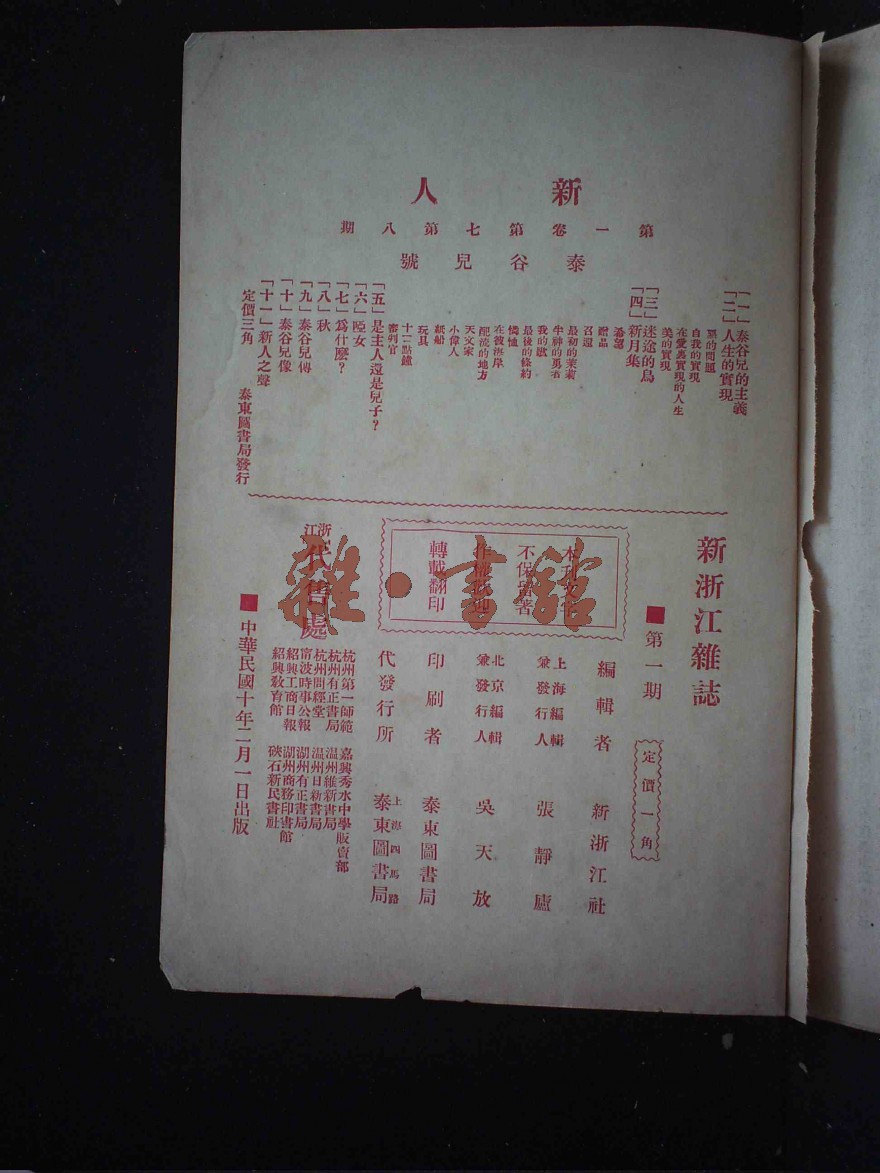 新人
第一卷第七第八期
泰谷兒號
「一」泰谷兒的主義
「二」人生的實現
惡的問題
自我的實現
在愛裏實現的人生
美的實現
「三」迷途的鳥
「四」新月集
贈品
召還
最初的茉莉
我的賦
最後的條約
憐恤
在彼海岸
天文家
小偉人
紙船
玩具
十二點鐘
審判官
「五」是主人還是兒子？
「六」啞女
「七」爲什麽？
「八」秋
「九」泰谷兒傳
「十」泰谷兒像
「十一」新人之聲
定價三角
泰東圖書局發行
新浙江雜誌
第一期
定價一角
本刊文字
不保留著
作權歡迎
轉載翻印
編輯者 新浙江社
上海編輯兼發行人 張靜廬
北京編輯兼發行人 吳天放
印刷者 泰東圖書局
代發行所 上海四馬路 泰東圖書局
浙江代售處
杭州第一師範 嘉興秀水中學販賣部
杭州有正書局 温州維新書局
杭州問經堂 温州日新書局
甯波時事公報 湖州有正書局
紹興工商日報 湖州商務印書館
紹興教育館 硤石新民書社
中華民國十年二月一日出版
雜·書館